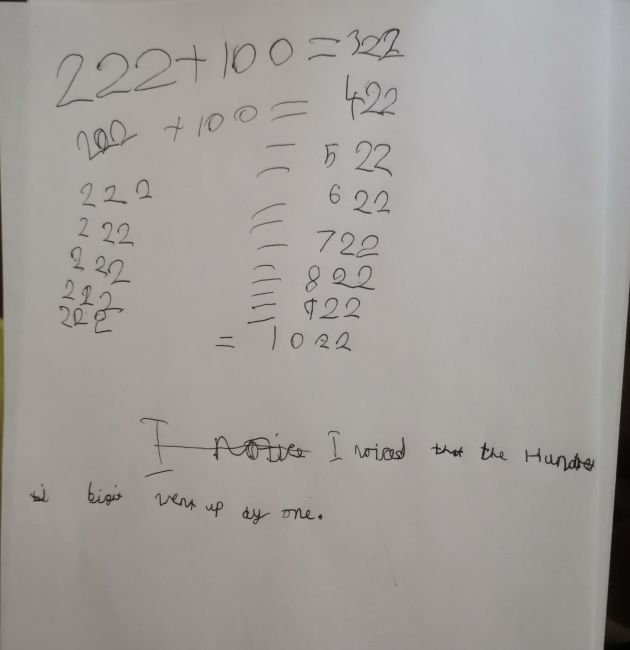 222+100=322
222 +100= 422
= 522
222 = 622
222 = 722
222 = 822
222 = 922
222
= 1022
I notice I noiced that the Hundred
digit went up by one.